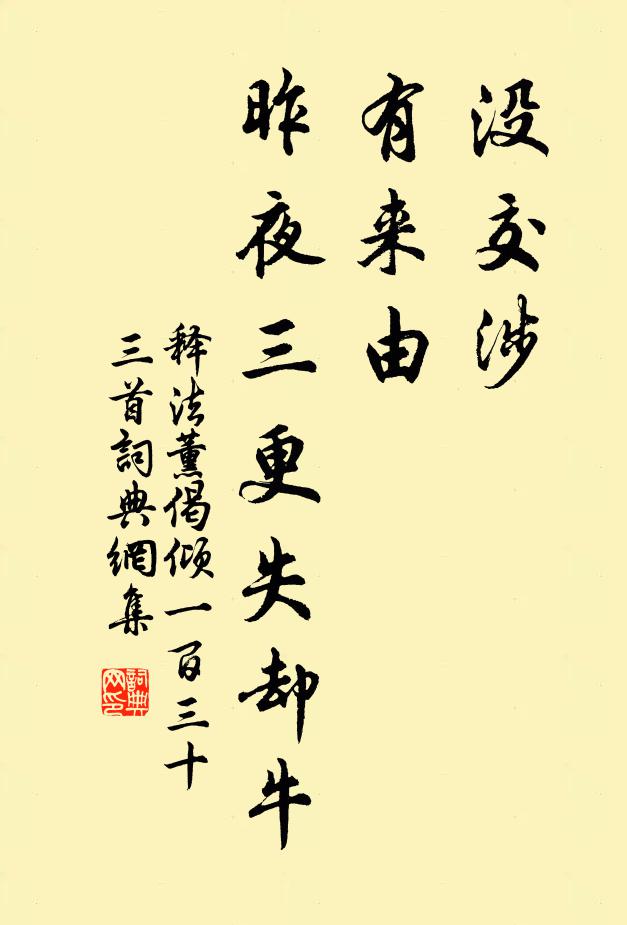 没交涉
有来由
昨夜三更失却牛
释法薰偈倾一百三十
三首詞典網集
詞典
网印